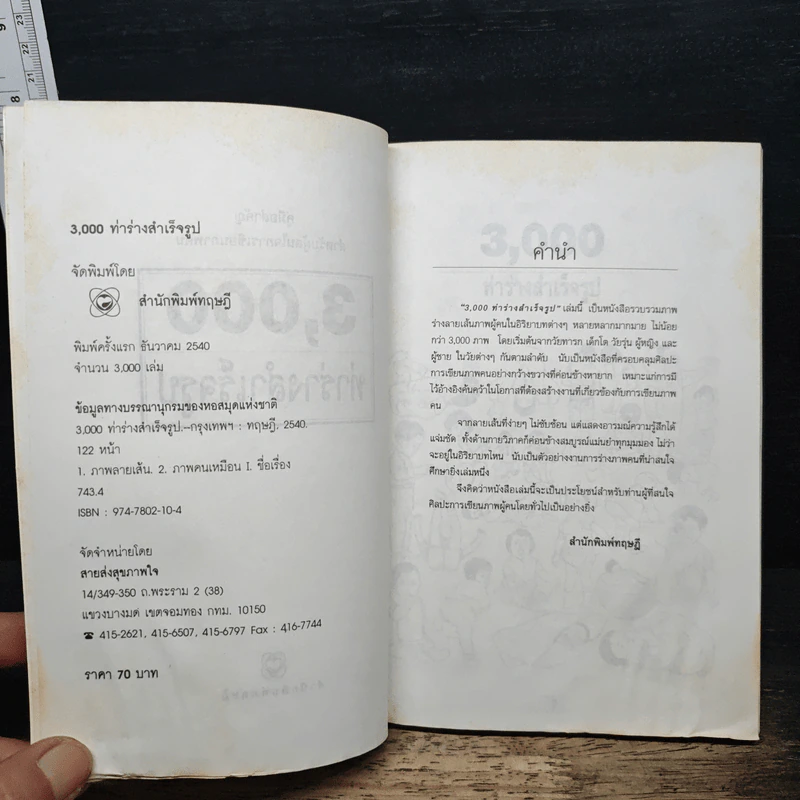 3,000 ท่าร่างสำเร็จรูป
จัดพิมพ์โดย
สำนักพิมพ์ทฤษฎี
พิมพ์ครั้งแรก ธันวาคม 2540
จำนวน 3,000 เล่ม
ข้อมูลทางบรรณานุกรมของหอสมุดแห่งชาติ
3,000 ท่าร่างสำเร็จรูป.--กรุงเทพฯ : ทฤษฎี, 2540.
122 หน้า
1. ภาพลายเส้น. 2. ภาพคนเหมือน I. ชื่อเรื่อง
743.4
ISBN : 974-7802-10-4
จัดจำหน่ายโดย
สายส่งสุขภาพใจ
14/349-350 ถ.พระราม 2 (38)
แขวงบางมด เขตจอมทอง กทม. 10150
☎ 415-2621, 415-6507, 415-6797 Fax : 416-7744
ราคา 70 บาท
คำนำ
"3,000 ท่าร่างสำเร็จรูป" เล่มนี้ เป็นหนังสือรวบรวมภาพ
ร่างลายเส้นภาพผู้คนในอิริยาบทต่างๆ หลายหลากมากมาย ไม่น้อย
กว่า 3,000 ภาพ โดยเริ่มต้นจากวัยทารก เด็กโต วัยรุ่น ผู้หญิง และ
ผู้ชาย ในวัยต่างๆ กันตามลำดับ นับเป็นหนังสือที่ครอบคลุมศิลปะ
การเขียนภาพคนอย่างกว้างขวางที่ค่อนข้างหายาก เหมาะแก่การมี
ไว้อ้างอิงค้นคว้าในโอกาสที่ต้องสร้างงานที่เกี่ยวข้องกับการเขียนภาพ
คน
จากลายเส้นที่ง่ายๆ ไม่ซับซ้อน แต่แสดงอารมณ์ความรู้สึกได้
แจ่มชัด ทั้งด้านกายวิภาคก็ค่อนข้างสมบูรณ์แม่นยำทุกมุมมอง ไม่ว่า
จะอยู่ในอิริยาบทไหน นับเป็นตัวอย่างงานการร่างภาพคนที่น่าสนใจ
ศึกษายิ่งเล่มหนึ่ง
จึงคิดว่าหนังสือเล่มนี้จะเป็นประโยชน์สำหรับท่านผู้ที่สนใจ
ศิลปะการเขียนภาพผู้คนโดยทั่วไปเป็นอย่างยิ่ง
สำนักพิมพ์ทฤษฎี